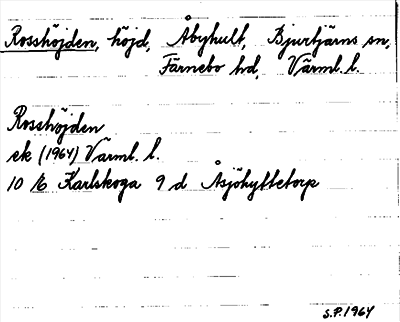 Rosshöjden, höjd, Åbyhult, Bjurtjärns sn,
Färnebo hd, Värml. l.
Rosshöjden
ek (1964) Värml. l.
10 E Karlskoga 9 d Åsjöhyttetorp
S.P. 1964